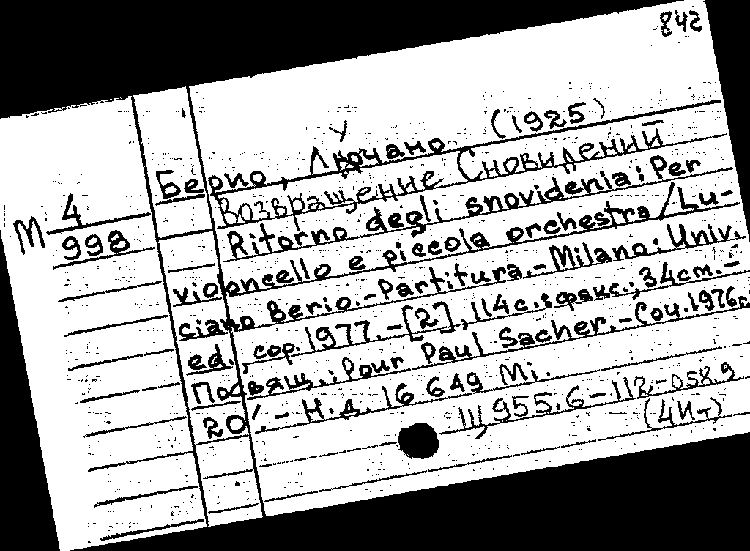 842
Берио, Лючано (1925)
У
Возвращение Сновидений
М 4
998
Ritorno degli snovidenia: Per
violoncello e piccola orchestra / Lu-
ciano Berio. - Partitura. - Milano: Univ.
ed., cop. 1977. - [2], 114 с.: факс.; 34 см. -
Посвящ.: Pour Paul Sacher. - Соч. 1976 г.
20'. - Н. д. 16 649 Mi.
111,955.6-112.-058.9
(4Ит)